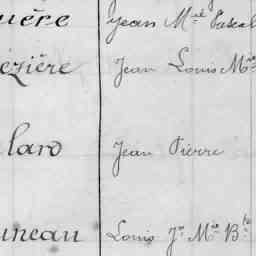 uère Jean Mel Pascal
ézière Jean Louis Mie
lard Jean Pierre
uneau Louis Jn Mie Bte